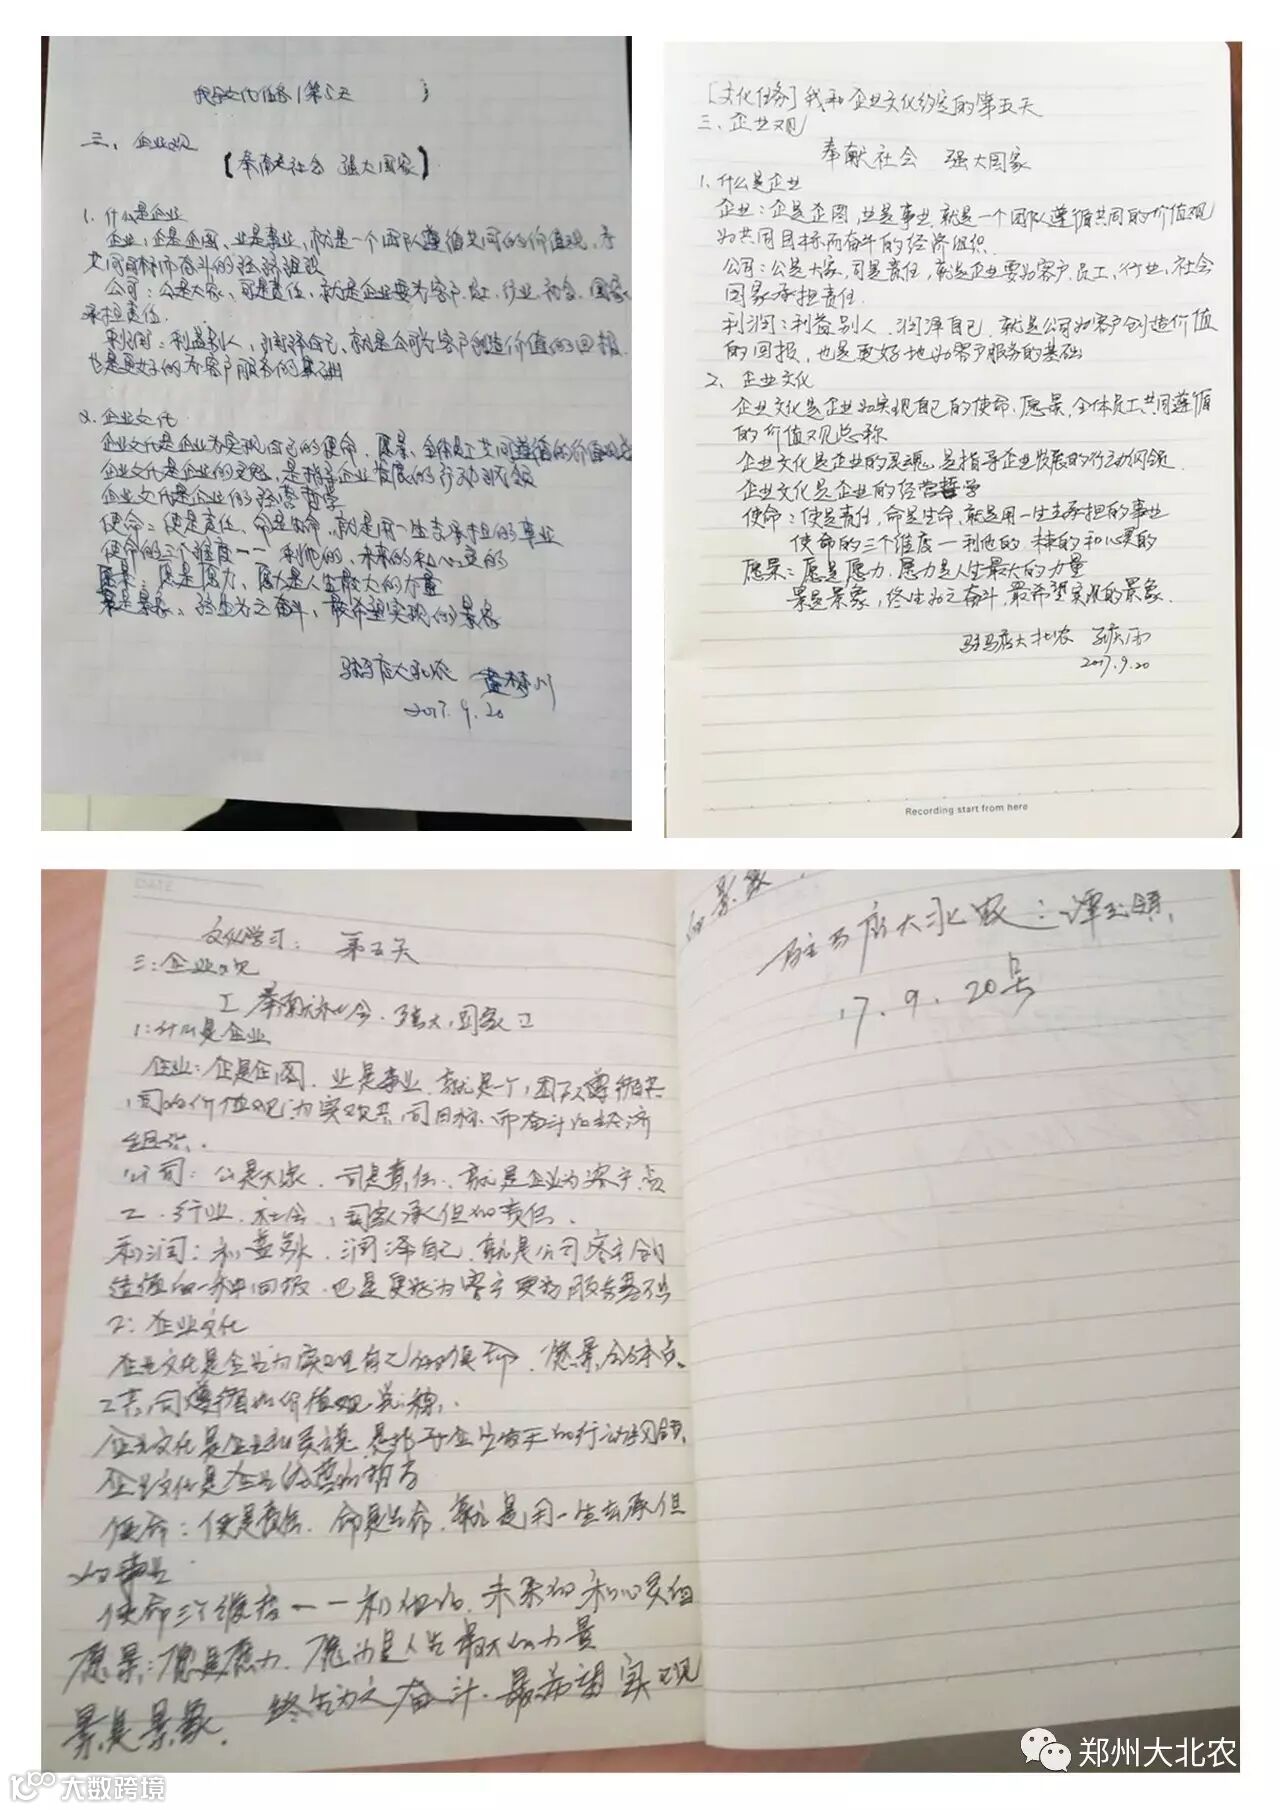 三、企业观
【奉献社会 强大国家】
1. 什么是企业
企业：企是企图、业是事业，就是一个团队遵循共同的价值观，为
共同目标而奋斗的经济组织
公司：公是大家、司是责任，就是企业要为客户、员工、行业、社会、国家
承担责任.
利润：利益别人，润泽自己、就是公司为客户创造价值的回报.
也是更好的为客户服务的基础
2. 企业文化
企业文化是企业为实现自己的使命、愿景、全体员工共同遵循的价值观总
企业文化是企业的灵魂，是指导企业发展的行动纲领
企业文化是企业的经营哲学
使命：使是责任、命是生命，就是用一生去承担的事业
使命的三个维度——利他的、未来的和心灵的
愿景：愿是愿力，愿力是人生最大的力量
景是景象，终生为之奋斗，最希望实现的景象
驻马店大北农
2017.9.20
[文化任务]我和企业文化约定的第五天
三、企业观
奉献社会 强大国家
1、什么是企业
企业：企是企图,业是事业,就是一个团队遵循共同的价值观
为共同目标而奋斗的经济组织.
公司：公是大家,司是责任,就是企业要为客户、员工、行业、社会
国家承担责任.
利润：利益别人,润泽自己,就是公司为客户创造价值
的回报，也是更好地为客户服务的基础
2、企业文化
企业文化是企业为实现自己的使命、愿景,全体员工共同遵循
的价值观总称
企业文化是企业的灵魂,是指导企业发展的行动纲领.
企业文化是企业的经营哲学
使命：使是责任,命是生命,就是用一生去承担的事业
使命的三个维度—利他的 未来的和心灵的
愿景：愿是愿力,愿力是人生最大的力量
景是景象，终生为之奋斗,最希望实现的景象.
驻马店大北农
2017.9.20
Recording start from here
DATE
文化学习：第五天
三:企业观
[奉献社会.强大国家]
1:什么是企业
企业：企是企图.业是事业.就是一个团队遵循共
同的价值观为实现共同目标而奋斗的经济
组织.
公司：公是大家.司是责任.就是企业为客户.员
工.行业.社会.国家承担的责任.
利润：利益别人.润泽自己.就是公司客户创
造值的一种回报.也是更好为客户更好服务基础
2:企业文化
企业文化是企业为实现自己的使命.愿景.全体员
工共同遵循的价值观总称.
企业文化是企业的灵魂.是指导企业发展的行动纲领.
企业文化是企业经营的哲学
使命：使是责任.命是生命.就是用一生去承担
的事业
使命三个维度——利他的.未来的和心灵的
愿景：愿是愿力.愿力是人生最大的力量
景是景象.终生为之奋斗.最希望实现
的景象.
驻马店大北农：
17.9.20号
郑州大北农
大数跨境